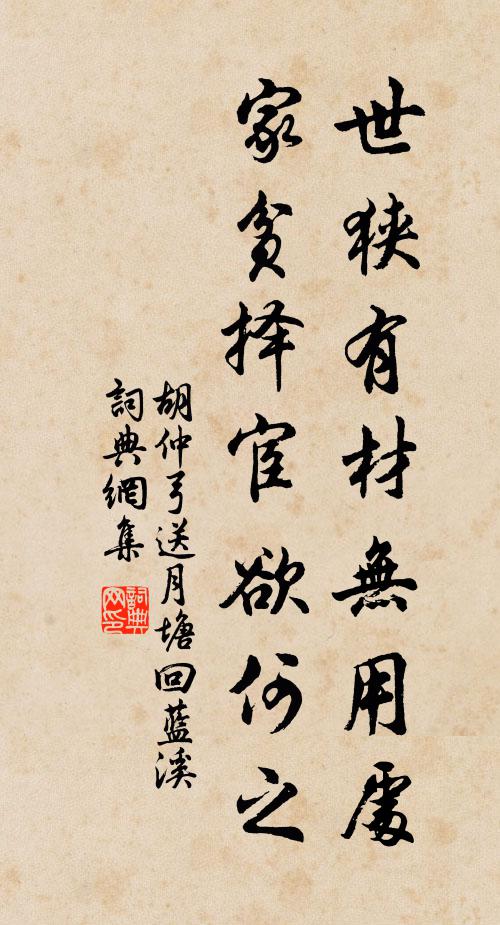 世狹有材無用處
家貧择宦欲何之
胡仲弓送月塘回藍溪
詞典網集
詞典网印